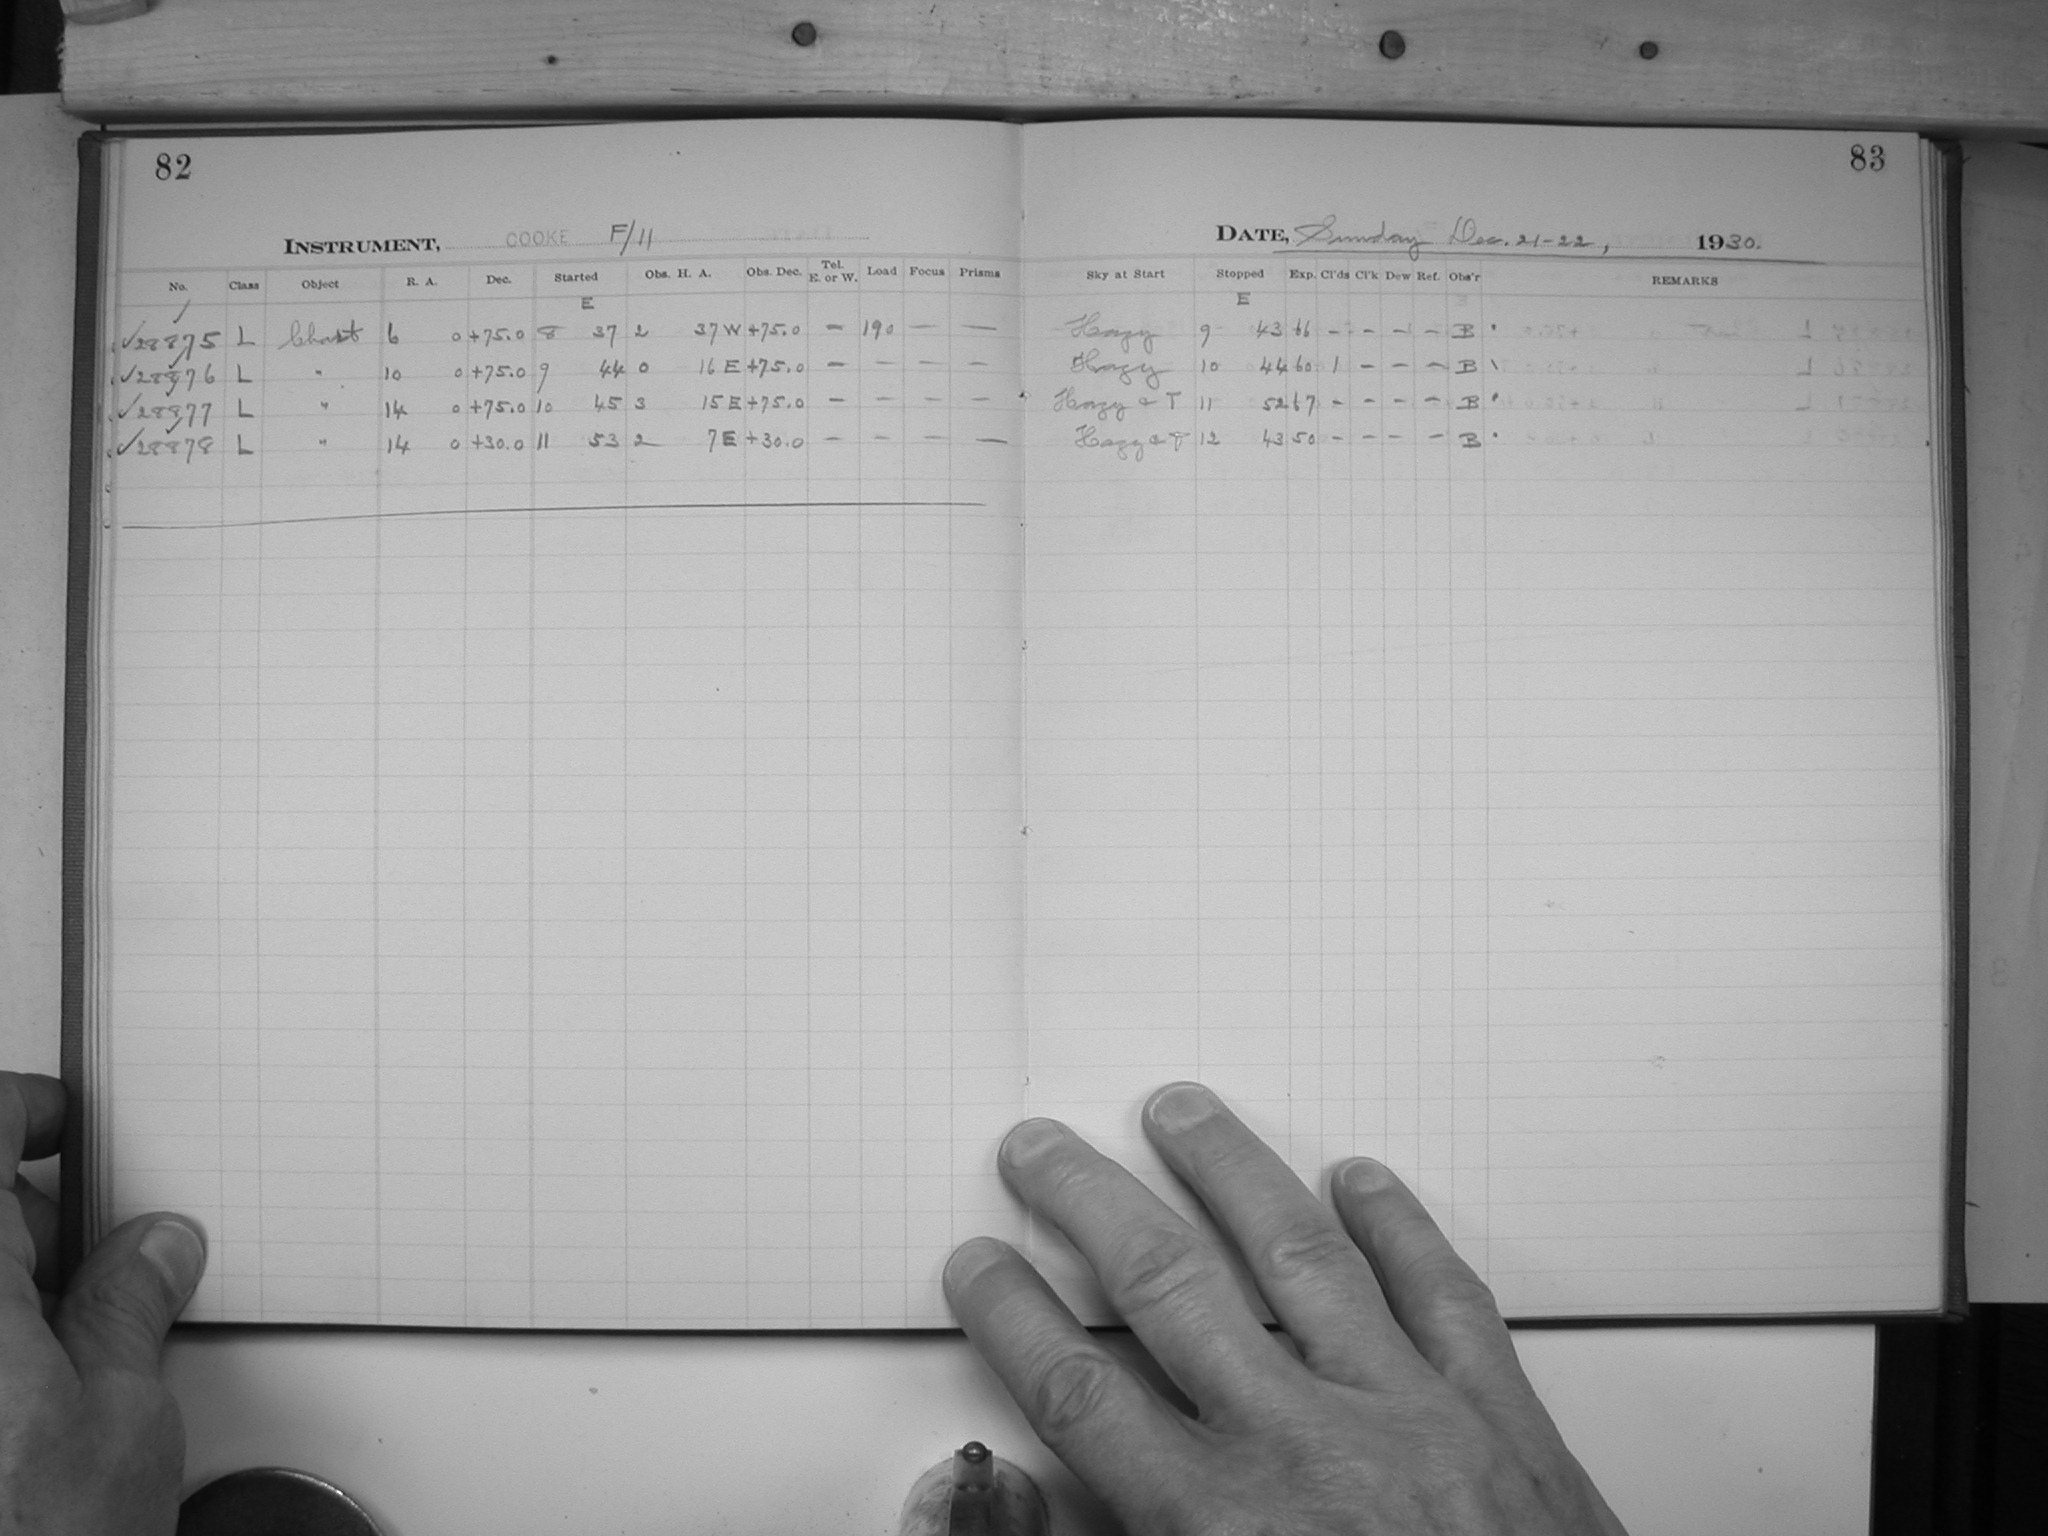 82
INSTRUMENT, COOKE F/11
No. Class Object R. A. Dec. Started Obs. H. A. Obs. Dec. Tel. E. or W. Load Focus Prisms
E
✓28875 L Chart 6 0 +75.0 8 37 2 37 W +75.0 — 190 — —
✓28876 L " 10 0 +75.0 9 44 0 16 E +75.0 — — — —
✓28877 L " 14 0 +75.0 10 45 3 15 E +75.0 — — — —
✓28878 L " 14 0 +30.0 11 53 2 7 E +30.0 — — — —
83
DATE, Sunday Dec. 21-22, 1930.
Sky at Start Stopped Exp. Cl'ds Cl'k Dew Ref. Obs'r REMARKS
E
Hazy 9 43 66 - - - - B
Hazy 10 44 60 1 - - - B
Hazy & T 11 52 67 - - - - B
Hazy & T 12 43 50 - - - - B